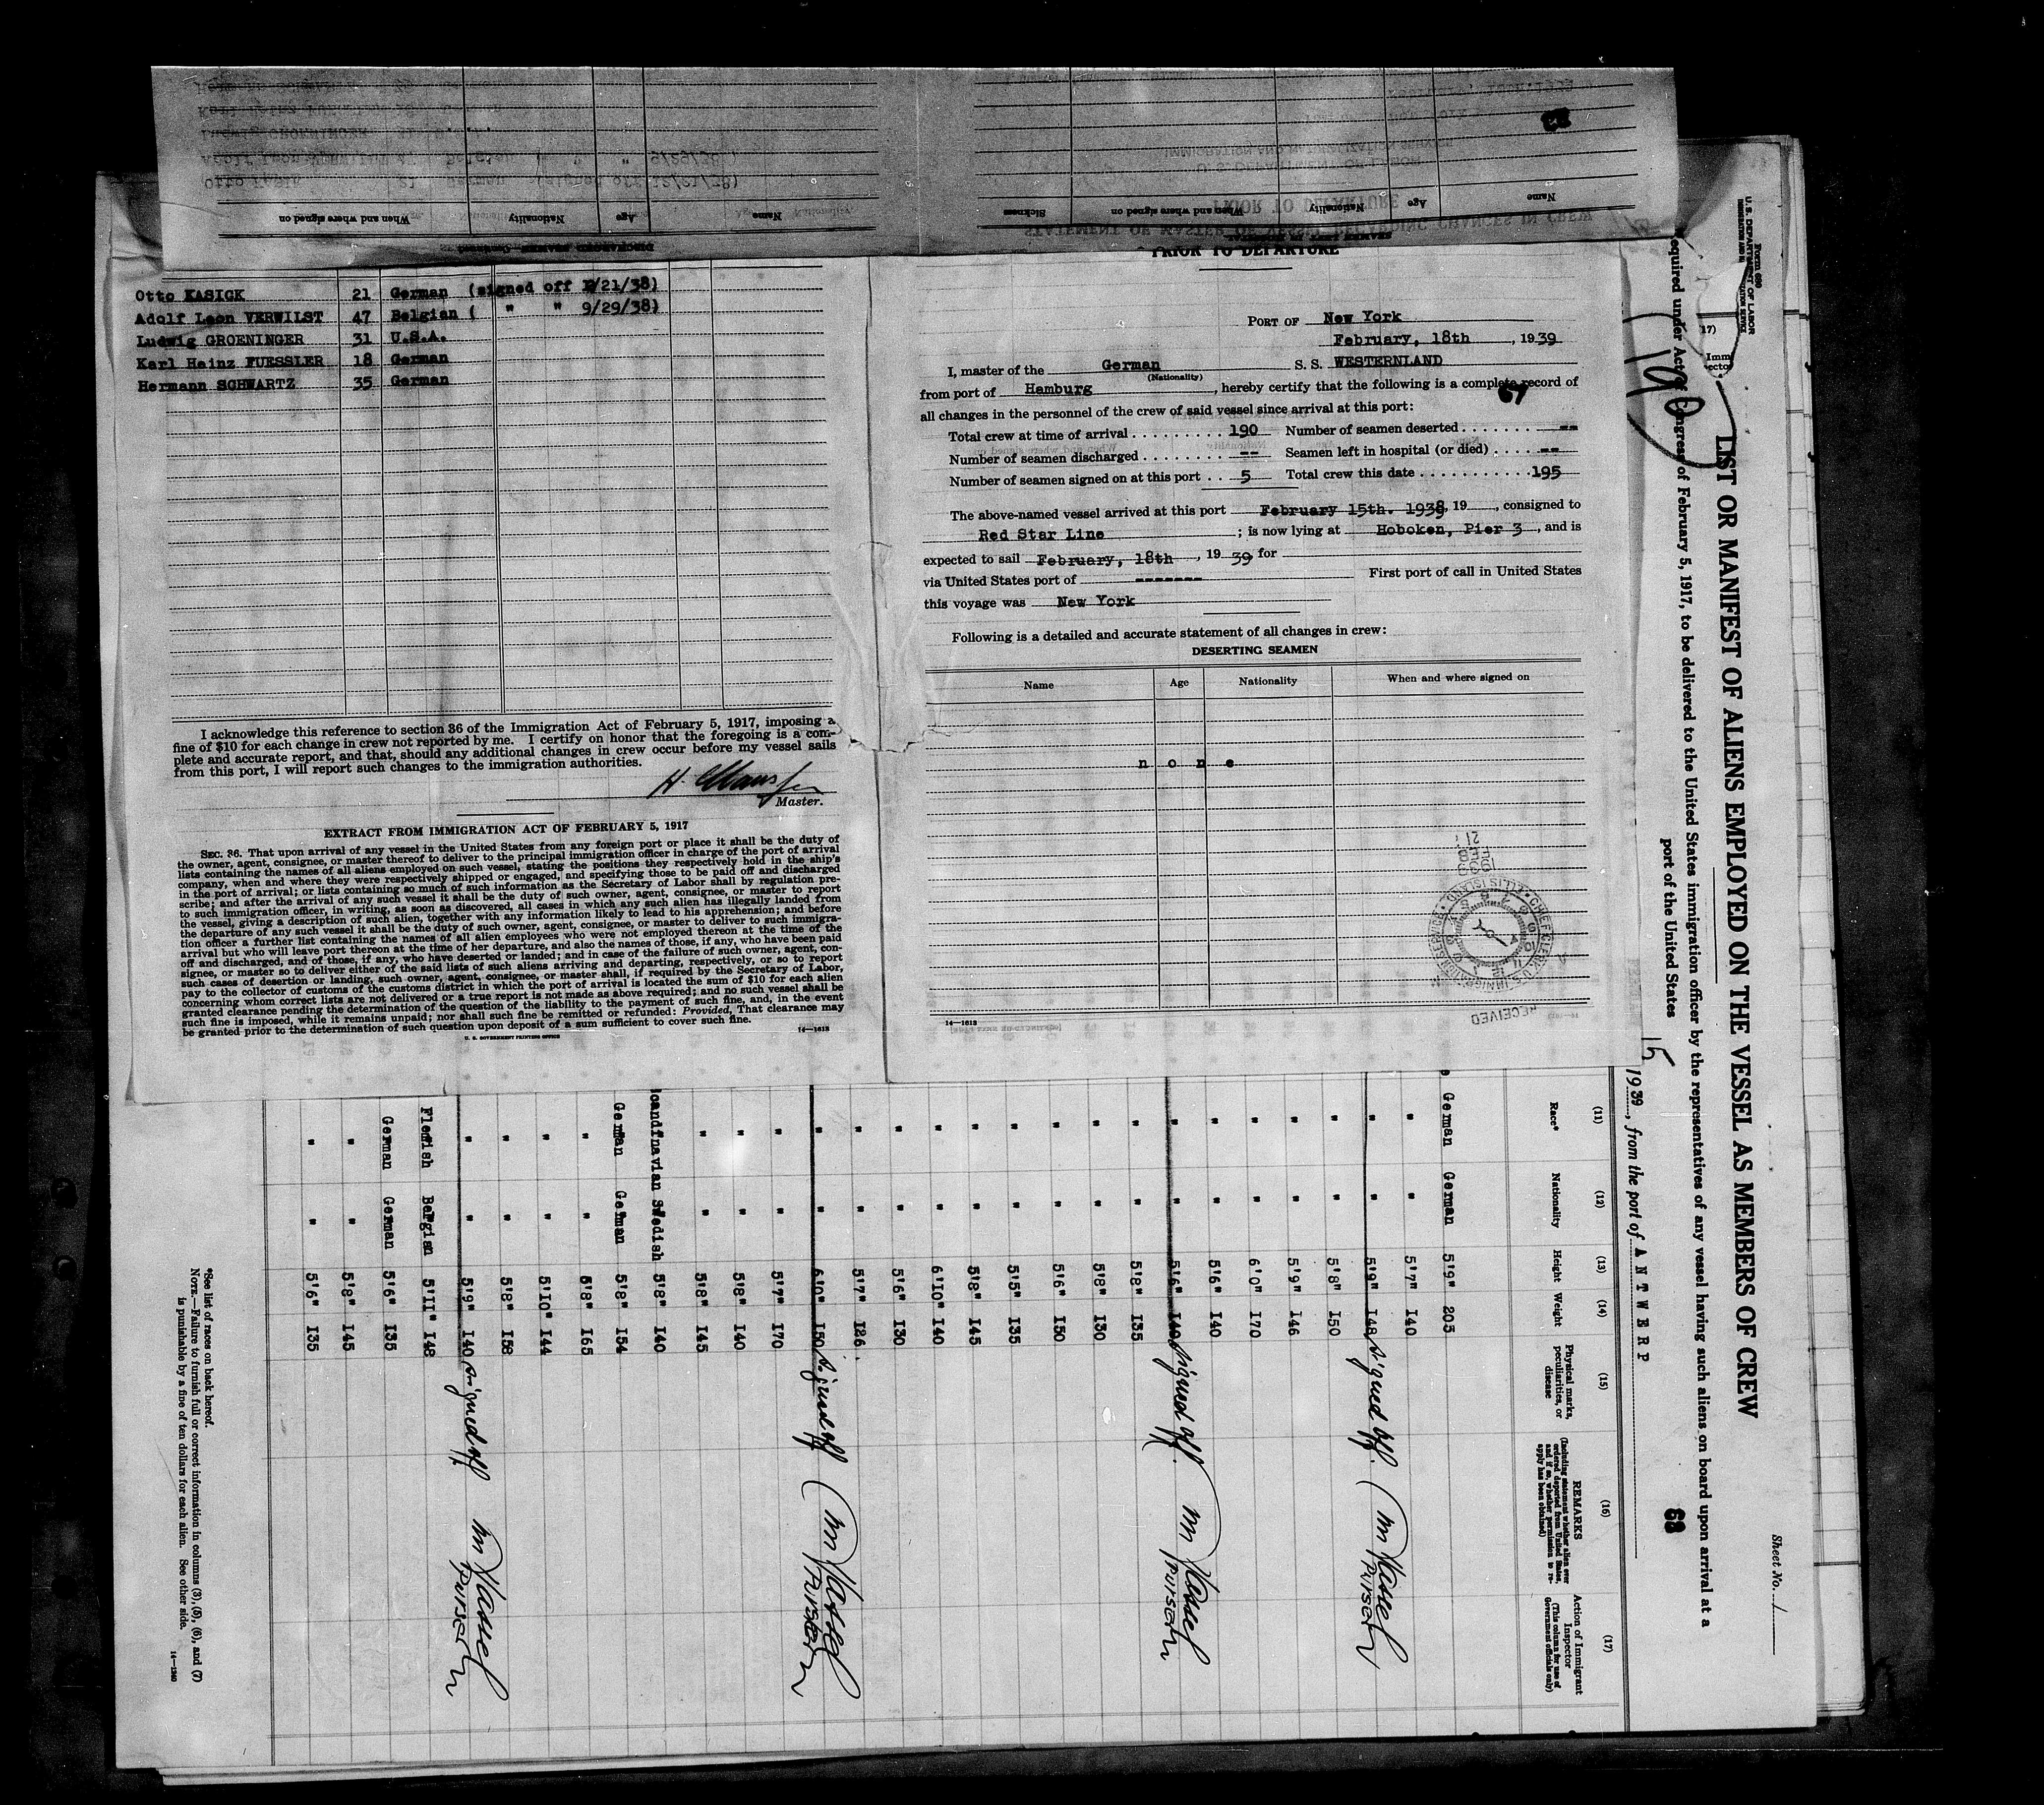 Otto KASICK 21 German (signed off 12/21/38)
Adolf Leon VERWILST 47 Belgian ( " " 9/29/38)
Ludwig GROENINGER 31 U.S.A.
Karl Heinz FUESSLER 18 German
Hermann SCHWARTZ 35 German
I acknowledge this reference to section 36 of the Immigration Act of February 5, 1917, imposing a
fine of $10 for each change in crew not reported by me. I certify on honor that the foregoing is a com-
plete and accurate report, and that, should any additional changes in crew occur before my vessel sails
from this port, I will report such changes to the immigration authorities.
Master.
EXTRACT FROM IMMIGRATION ACT OF FEBRUARY 5, 1917
SEC. 36. That upon arrival of any vessel in the United States from any foreign port or place it shall be the duty of
the owner, agent, consignee, or master thereof to deliver to the principal immigration officer in charge of the port of arrival
lists containing the names of all aliens employed on such vessel, stating the positions they respectively hold in the ship's
company, when and where they were respectively shipped or engaged, and specifying those to be paid off and discharged
in the port of arrival; or lists containing so much of such information as the Secretary of Labor shall by regulation pre-
scribe; and after the arrival of any such vessel it shall be the duty of such owner, agent, consignee, or master to report
to such immigration officer, in writing, as soon as discovered, all cases in which any such alien has illegally landed from
the vessel, giving a description of such alien, together with any information likely to lead to his apprehension; and before
the departure of any such vessel it shall be the duty of such owner, agent, consignee, or master to deliver to such immigra-
tion officer a further list containing the names of all alien employees who were not employed thereon at the time of the
arrival but who will leave port thereon at the time of her departure, and also the names of those, if any, who have been paid
off and discharged, and of those, if any, who have deserted or landed; and in case of the failure of such owner, agent, con-
signee, or master so to deliver either of the said lists of such aliens arriving and departing, respectively, or so to report
such cases of desertion or landing, such owner, agent, consignee, or master shall, if required by the Secretary of Labor,
pay to the collector of customs of the customs district in which the port of arrival is located the sum of $10 for each alien
concerning whom correct lists are not delivered or a true report is not made as above required; and no such vessel shall be
granted clearance pending the determination of the question of the liability to the payment of such fine, and, in the event
such fine is imposed, while it remains unpaid; nor shall such fine be remitted or refunded: Provided, That clearance may
be granted prior to the determination of such question upon deposit of a sum sufficient to cover such fine.
U. S. GOVERNMENT PRINTING OFFICE 14—1613
PRIOR TO DEPARTURE
PORT OF New York
February, 18th, 1939
I, master of the German S. S. WESTERNLAND
(Nationality)
from port of Hamburg, hereby certify that the following is a complete record of
67
all changes in the personnel of the crew of said vessel since arrival at this port:
Total crew at time of arrival 190 Number of seamen deserted --
Number of seamen discharged -- Seamen left in hospital (or died) --
Number of seamen signed on at this port 5 Total crew this date 195
The above-named vessel arrived at this port February 15th. 1938, 19 , consigned to
Red Star Line ; is now lying at Hoboken, Pier 3, and is
expected to sail February, 18th, 19 39 for
via United States port of ------- First port of call in United States
this voyage was New York
Following is a detailed and accurate statement of all changes in crew:
DESERTING SEAMEN
Name Age Nationality When and where signed on
n o n e
14—1613
RECEIVED
Form 680
U. S. DEPARTMENT OF LABOR
Sheet No. 1
LIST OR MANIFEST OF ALIENS EMPLOYED ON THE VESSEL AS MEMBERS OF CREW
Required under Act of Congress of February 5, 1917, to be delivered to the United States immigration officer by the representatives of any vessel having such aliens on board upon arrival at a
port of the United States
68
15 1939, from the port of ANTWERP
(11) (12) (13) (14) (15) (16) (17)
Race* Nationality Height Weight Physical marks, peculiarities, or disease
REMARKS
(Including statement whether alien ever ordered deported from United States, and if so, whether permission to reapply has been obtained)
Action of Immigrant Inspector
(This column for use of Government officials only)
German German 5'9" 205
" " 5'7" I40
" " 5'9" I48 signed off. Purser
" " 5'8" I50
" " 5'9½" I46
" " 6'0" I70
" " 5'6" I40
" " 5'6" I40 signed off. Purser
" " 5'8" I35
" " 5'8" I30
" " 5'6" I50
" " 5'5" I35
" " 5'8" I45
" " 6'I0" I40
" " 5'6" I30
" " 5'7" I26
" " 6'0" I50 signed off Purser
" " 5'7" I70
" " 5'8" I40
" " 5'8" I45
Scandinavian Swedish 5'8" I40
German German 5'8" I54
" " 5'8" I65
" " 5'I0" I44
" " 5'8" I58
" " 5'9" I40 signed off Purser
Flemish Belgian 5'II" I48
German German 5'6" I35
" " 5'8" I45
" " 5'6" I35
*See list of races on back hereof.
NOTE.—Failure to furnish full or correct information in columns (3), (5), (6), and (7)
is punishable by a fine of ten dollars for each alien. See other side.
14—1240